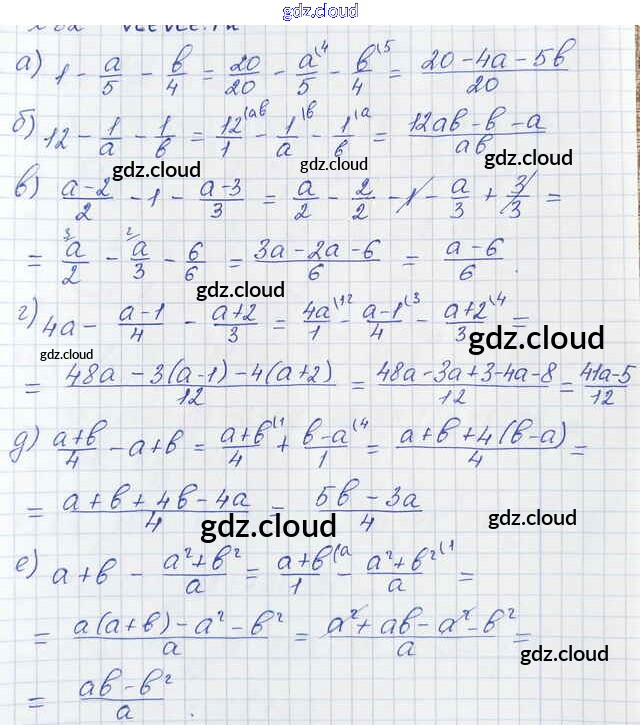 gdz.cloud
а) 1 - a/5 - b/4 = 20/20 - a\4/5 - b\5/4 = (20 - 4a - 5b)/20
б) 12 - 1/a - 1/b = 12\ab/1 - 1\b/a - 1\a/b = (12ab - b - a)/ab
gdz.cloud
gdz.cloud
в) (a-2)/2 - 1 - (a-3)/3 = a/2 - 2/2 - 1 - a/3 + 3/3 =
= 3\a/2 - 2\a/3 - 6/6 = (3a - 2a - 6)/6 = (a - 6)/6.
gdz.cloud
г) 4a - (a-1)/4 - (a+2)/3 = 4a\12/1 - (a-1)\3/4 - (a+2)\4/3 =
gdz.cloud
gdz.cloud
= (48a - 3(a-1) - 4(a+2))/12 = (48a - 3a + 3 - 4a - 8)/12 = (41a - 5)/12
д) (a+b)/4 - a + b = (a+b)\1/4 + (b-a)\4/1 = (a + b + 4(b-a))/4 =
= (a + b + 4b - 4a)/4 = (5b - 3a)/4
gdz.cloud
gdz.cloud
е) a + b - (a² + b²)/a = (a+b)\a/1 - (a² + b²)\1/a =
= (a(a+b) - a² - b²)/a = (a² + ab - a² - b²)/a =
gdz.cloud
= (ab - b²)/a.